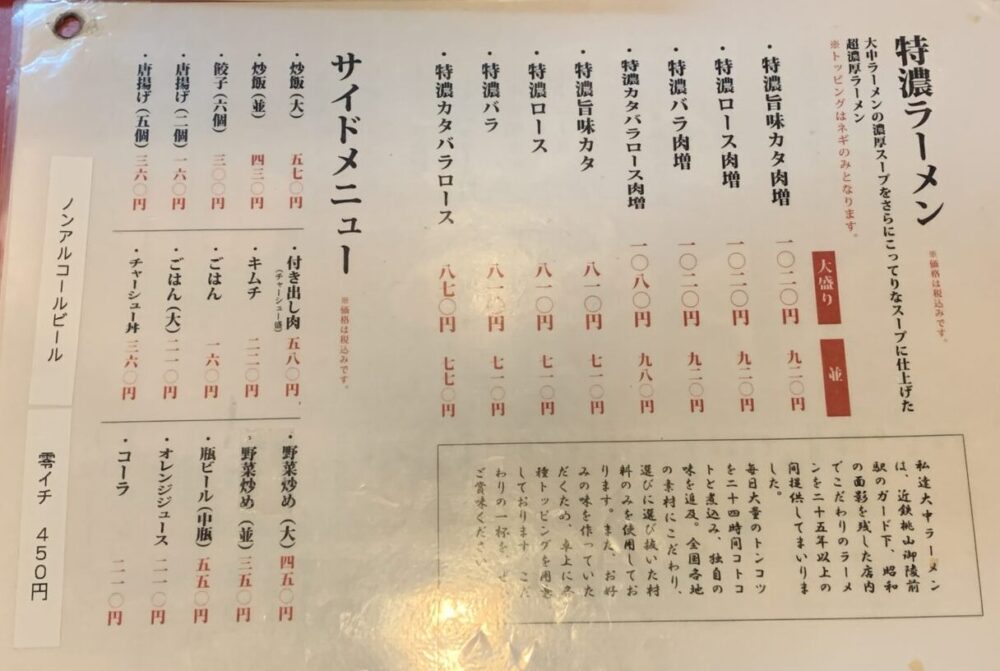 特濃ラーメン
※価格は税込みです。
大中ラーメンの濃厚スープをさらにこってりなスープに仕上げた
超濃厚ラーメン
※トッピングはネギのみとなります。
大盛り 並
・特濃旨味カタ肉増 一〇二〇円 九二〇円
・特濃ロース肉増 一〇二〇円 九二〇円
・特濃バラ肉増 一〇二〇円 九二〇円
・特濃カタバラロース肉増 一〇八〇円 九八〇円
・特濃旨味カタ 八一〇円 七一〇円
・特濃ロース 八一〇円 七一〇円
・特濃バラ 八一〇円 七一〇円
・特濃カタバラロース 八七〇円 七七〇円
私達大中ラーメン
は、近鉄桃山御陵前
駅のガード下、昭和
の面影を残した店内
でこだわりのラーメ
ンを二十五年以上の
間提供してまいりま
した。
毎日大量のトンコツ
を二十四時間コトコ
トと煮込み、独自の
味を追及。全国各地
の素材にこだわり、
選びに選び抜いた材
料のみを使用してお
ります。また、お好
みの味を作っていた
だくため、卓上に各
種トッピングを用意
しております。こだ
わりの一杯を、ぜ
ご賞味ください
サイドメニュー
※価格は税込みです。
・炒飯(大) 五七〇円
・炒飯(並) 四三〇円
・餃子(六個) 三〇〇円
・唐揚げ(二個) 一六〇円
・唐揚げ(五個) 三六〇円
・付き出し肉 五八〇円
(チャーシュー盛)
・キムチ 二二〇円
・ごはん 一六〇円
・ごはん(大) 二一〇円
・チャーシュー丼 三六〇円
・野菜炒め(大) 四五〇円
・野菜炒め(並) 三五〇円
・瓶ビール(中瓶) 五五〇円
・オレンジジュース 二一〇円
・コーラ 二一〇円
ノンアルコールビール 零イチ 450円